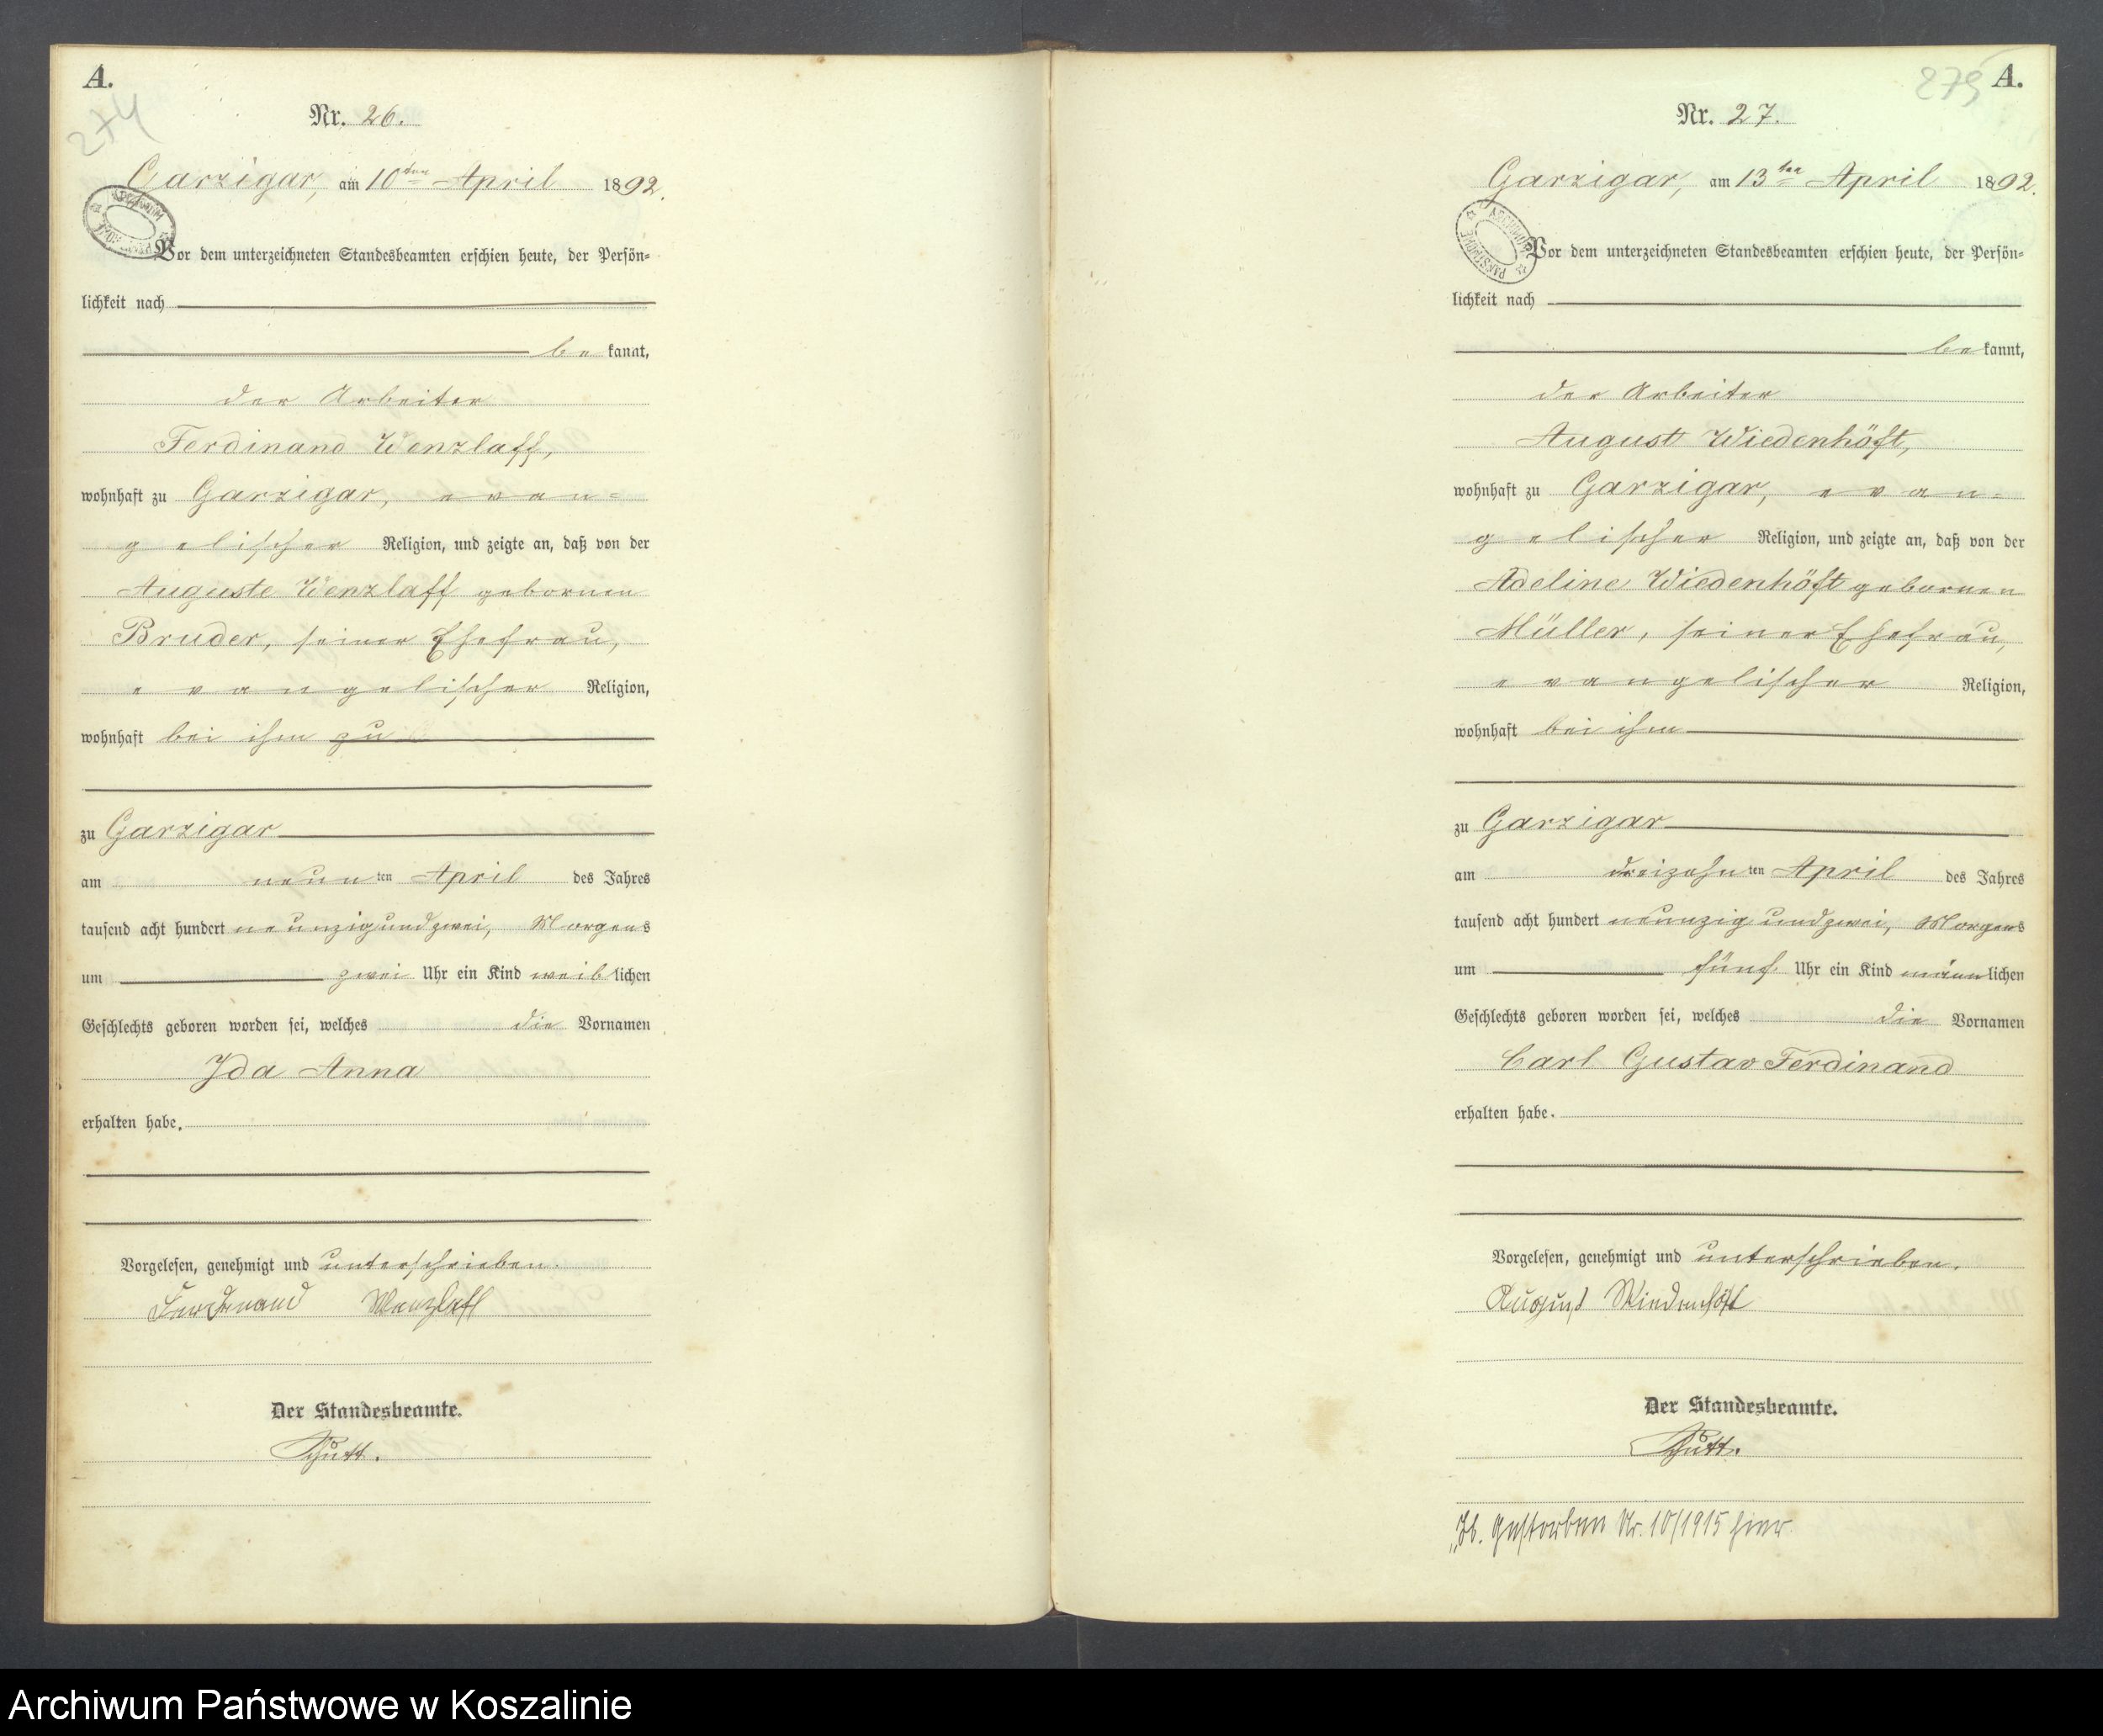 A.
274
Nr. 26.
Garzigar, am 10ten April 1892.
Vor dem unterzeichneten Standesbeamten erschien heute, der Persön=
lichkeit nach
be kannt,
der Arbeiter
Ferdinand Wenzlaff,
wohnhaft zu Garzigar, evan=
gelischer Religion, und zeigte an, daß von der
Auguste Wenzlaff gebornen
Bruder, seiner Ehefrau,
evangelischer Religion,
wohnhaft bei ihm zu
zu Garzigar
am neun ten April des Jahres
tausend acht hundert neunzig und zwei, Morgens
um zwei Uhr ein Kind weiblichen
Geschlechts geboren worden sei, welches die Vornamen
Ida Anna
erhalten habe.
Vorgelesen, genehmigt und unterschrieben.
Ferdinand Wenzlaff
Der Standesbeamte.
Schütt.
A.
275
Nr. 27.
Garzigar, am 13ten April 1892.
ARCHIWUM PAŃSTWOWE
Vor dem unterzeichneten Standesbeamten erschien heute, der Persön=
lichkeit nach
be kannt,
der Arbeiter
August Wiedenhöft,
wohnhaft zu Garzigar, evan=
gelischer Religion, und zeigte an, daß von der
Adeline Wiedenhöft gebornen
Müller, seiner Ehefrau,
evangelischer Religion,
wohnhaft bei ihm
zu Garzigar
am dreizehn ten April des Jahres
tausend acht hundert neunzig und zwei, Morgens
um fünf Uhr ein Kind männlichen
Geschlechts geboren worden sei, welches die Vornamen
Carl Gustav Ferdinand
erhalten habe.
Vorgelesen, genehmigt und unterschrieben.
August Wiedenhöft
Der Standesbeamte.
Schütt.
Gestorben Nr. 10/1915 hier
Archiwum Państwowe w Koszalinie